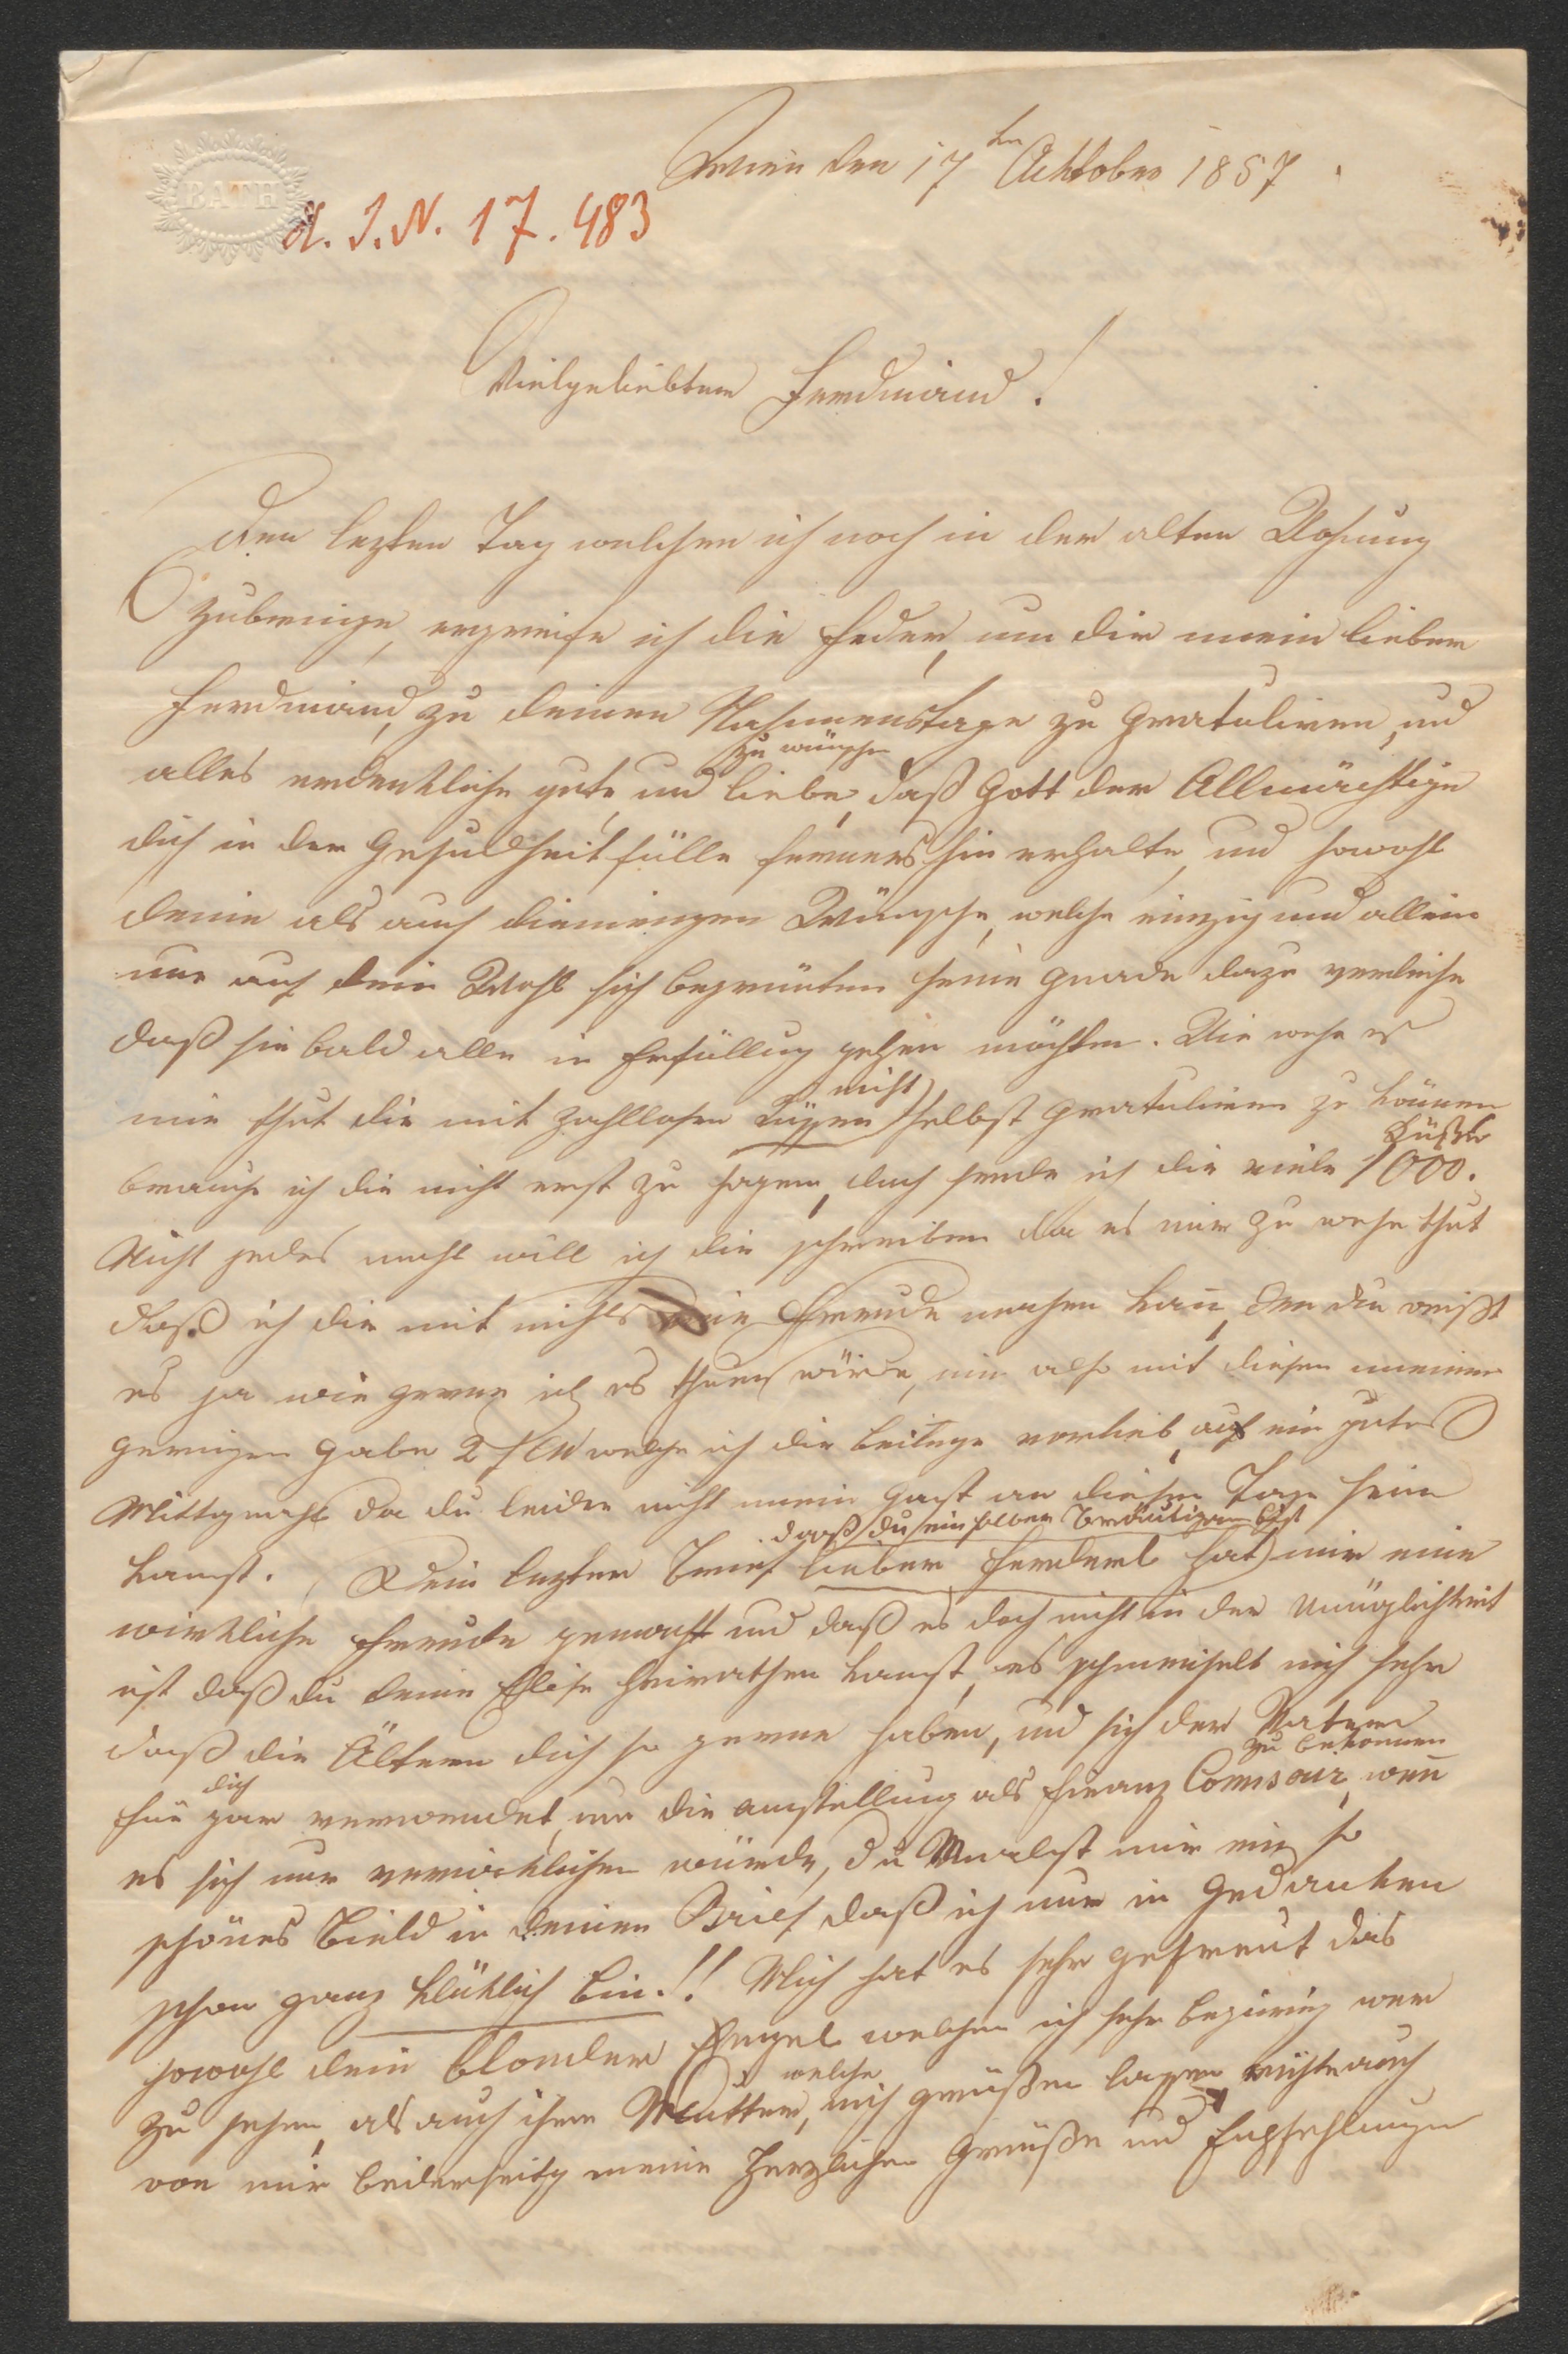 BATH
Wien den 17ten Ocktober 1857
A. I. N. 17.483
Vielgeliebter Ferdinand!
Den lezten Tag welchen ich noch in der alten Wohnung
zubringe, ergreife ich die Feder, um dir mein lieber
Ferdinand, zu deinen Nahmenstage zu gratuliren, und
zu wünschen
alles erdenkliche gute und liebe, daß Gott der Allmächtige
dich in der Gesundheit fülle ferners hin erhalte, und sowohl
deine als auch diemeinigen Wünsche, welche einzig und allein
nur auf dein Wohl sich begrünten seine gnade dazu verleihe
daß sie bald alle in Erfüllug gehen möchten. Wie wehe es
nicht
mir thut dir mit zahllosen Küssen selbst gratuliren zu können
Küße
brauche ich dir nicht erst zu sagen, doch sende ich dir viele 1000.
Nicht jedes mahl will ich dir schreiben da es mir zu wehe thut
daß ich dir mit nichts eine Freude machen kan̄, den du weißt
es ja wie gerne ich es thuen würde, nim also mit diesen meiner
geringen gabe 2 f CM welche ich dir beilege vorlieb, auf ein gutes
Mittagmahl da du leider nicht mein gast an diesen Tage sein
daß du ein Bräutigam bist
kanst. Dein lezter Brief lieber Ferderl hat mir eine
wirkliche Freude gemacht und daß es doch nicht in der Unmöglichkeit
ist daß du deine Elise heirathen kanst, es schmeichelt mich sehr
daß die Ältern dich so gerne haben, und sich der Vater
dich zu bekommen
für gar verwendet, um die anstellung als Finanz Comisair, wen̄
es sich nur verwirklichen würde, du Mahlest mir ein so
schönes Bield in deinen Brief daß ich nur in Gedanken
schon ganz klüklich bin!! Mich hat es sehr gefreut das
sowohl dein blonder Engel welchen ich sehr begierig wer
welche
zu sehen, als auch ihre Mutter, mich grüßen lassen, richte auch
von mir beiderseitz meine Herzlichen Grüße und Empfehlungen